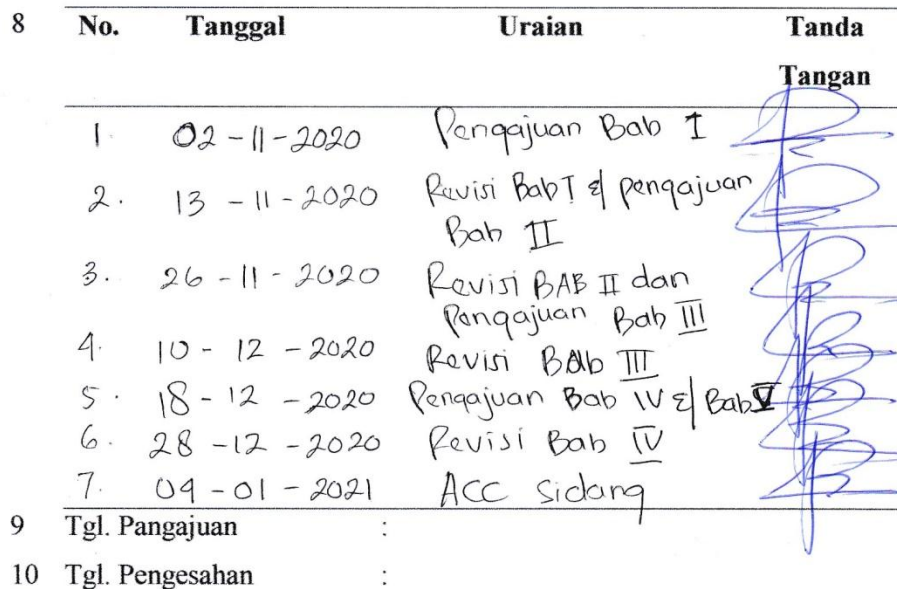 8 No. Tanggal Uraian Tanda
Tangan
1. 02-11-2020 Pengajuan Bab I
2. 13-11-2020 Revisi Bab I & pengajuan
Bab II
3. 26-11-2020 Revisi BAB II dan
Pengajuan Bab III
4. 10-12-2020 Revisi BAb III
5. 18-12-2020 Pengajuan Bab IV & Bab V
6. 28-12-2020 Revisi Bab IV
7. 04-01-2021 ACC sidang
9 Tgl. Pangajuan :
10 Tgl. Pengesahan :